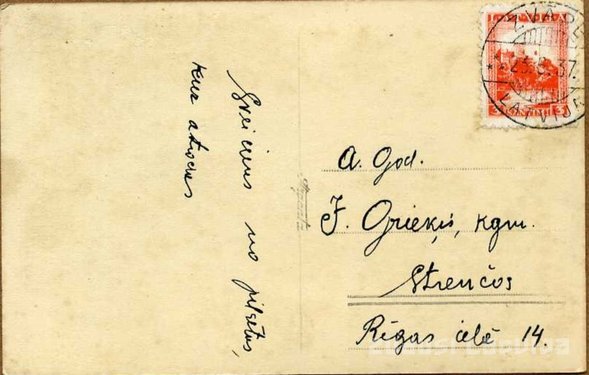 Sveiciens no pilsētas,
kur atrodas
A. God.
J. Grieķis, kgm.
Strenčos
Rīgas ielā 14.
LATVIJA